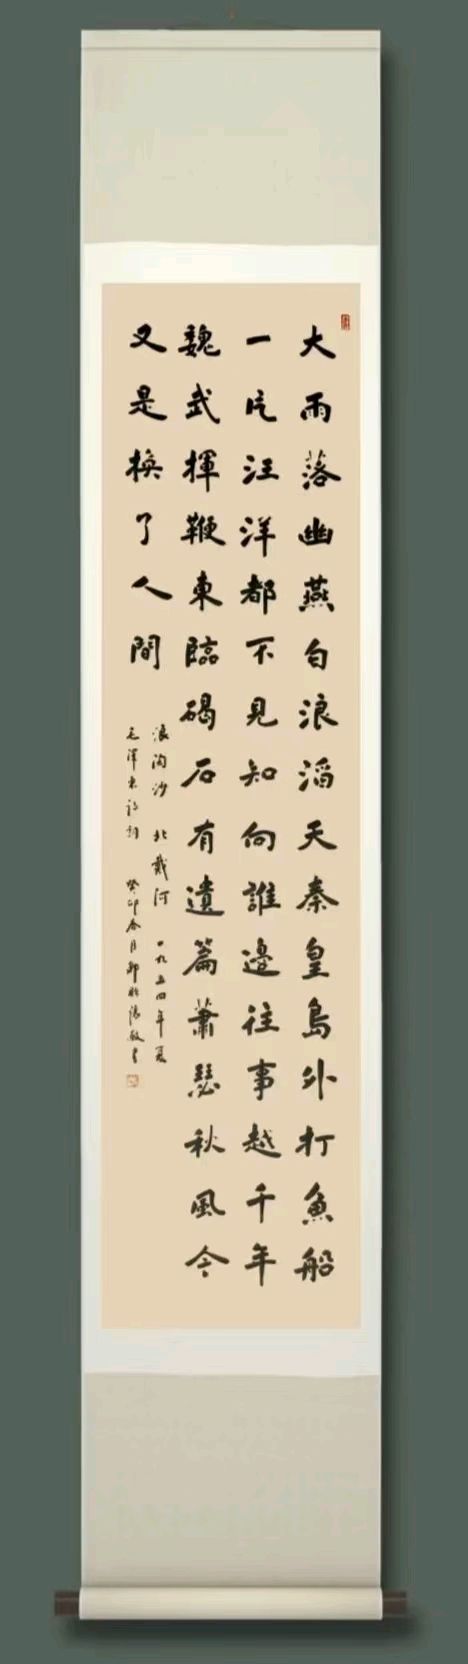 大雨落幽燕白浪滔天秦皇島外打魚船
一片汪洋都不見知向誰邊往事越千年
魏武揮鞭東臨碣石有遺篇蕭瑟秋風今
又是換了人間
浪淘沙 北戴河 一九五四年夏
毛澤東詩詞 癸卯春月 書